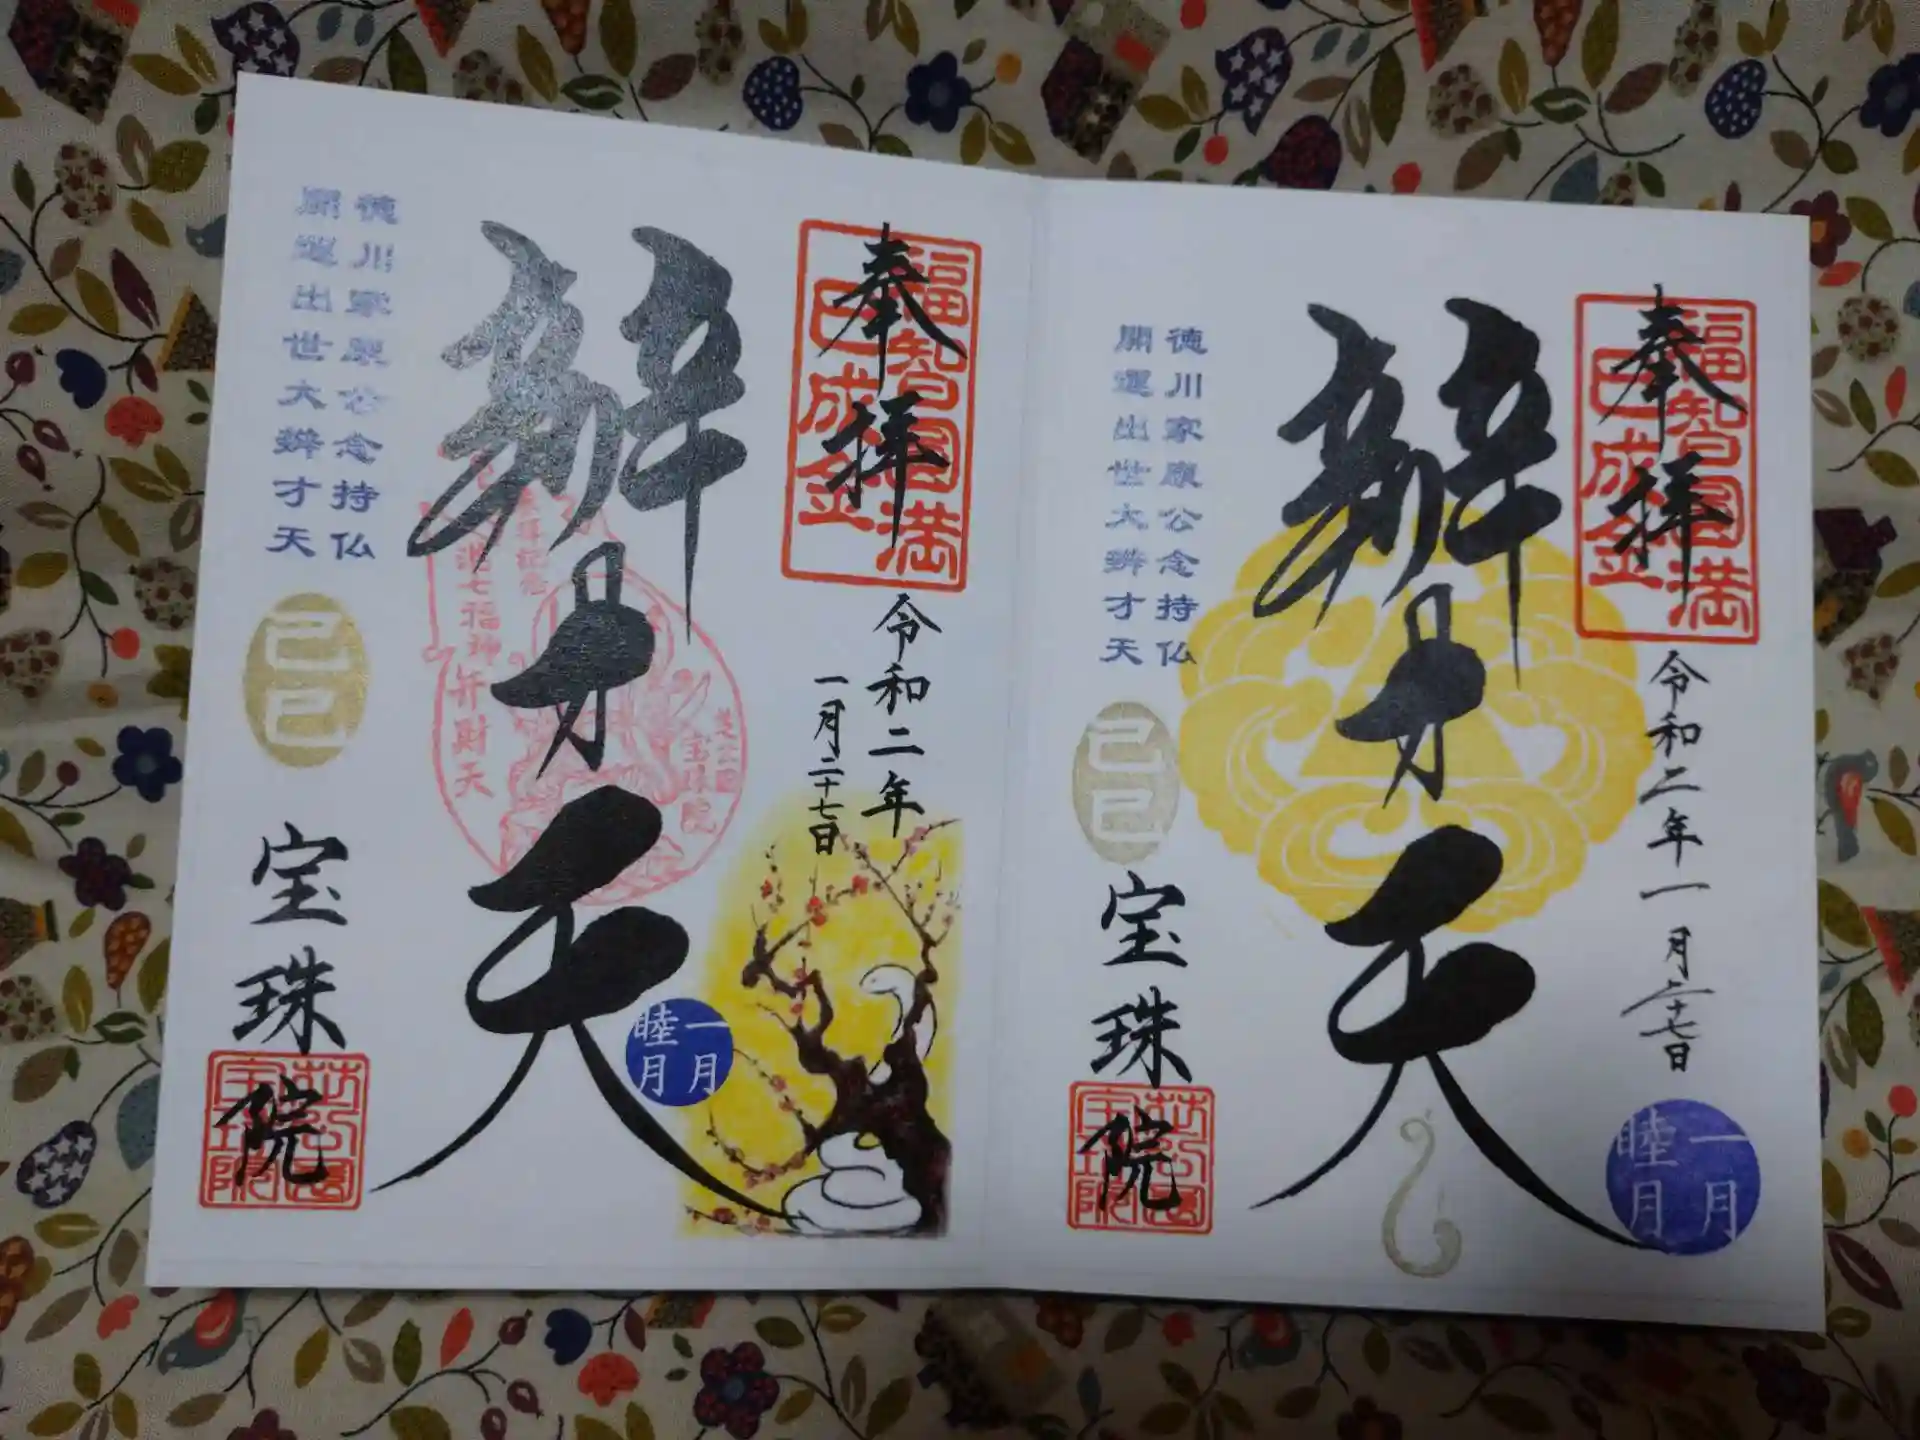 奉拝
福智円満
巳成金
令和二年一月二十七日
辨才天
徳川家康公念持仏
開運出世大辨才天
己巳
宝珠院
一月
睦月
奉拝
福智円満
巳成金
令和二年
一月二十七日
辨才天
参拝記念
港七福神弁財天
芝公園
宝珠院
徳川家康公念持仏
開運出世大辨才天
己巳
宝珠院
一月
睦月